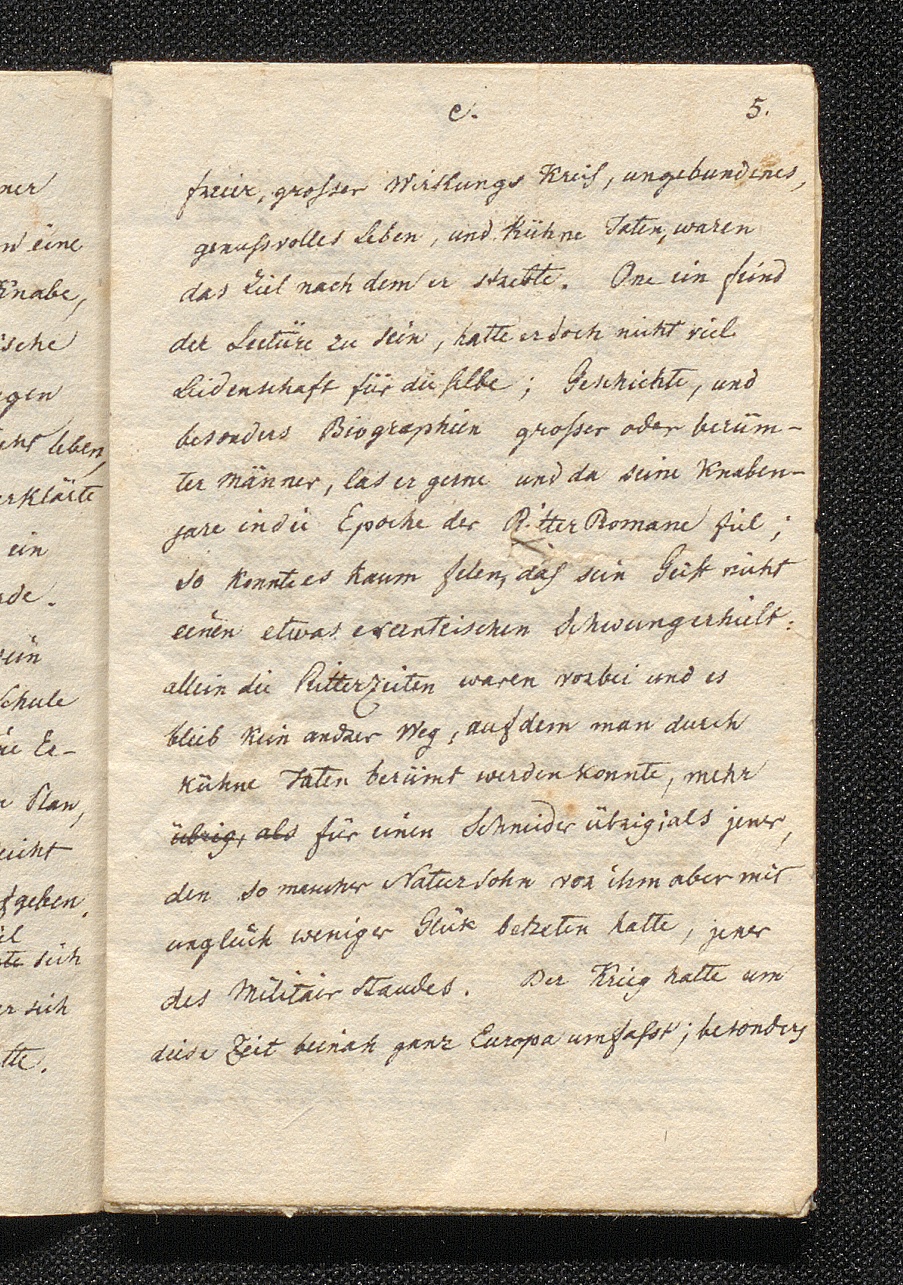 ner
eine
Knabe,
ische
gen
leben,
erklärte
ein
rde.
sein
Schule
ne Er-
Plan,
leicht
fgeben,
sich
er sich
tte.
e. 5.
freier, grosser Wirkungs Kreis, ungebundenes,
genussvolles Leben, und kühne Taten, waren
das Ziel nach dem er strebte. One ein feind
der Lectüre zu sein, hatte er doch nicht viel
Leidenschaft für dieselbe; Geschichte, und
besonders Biographien grosser oder berüm-
ter Männer, las er gerne und da seine Knaben-
jare in die Epoche der Ritter Romane fiel;
so konnte es kaum felen, das sein Geist nicht
einen etwas excenteischen Schwung erhielt:
allein die Ritterzeiten waren vorbei und es
blieb kein andrer Weg, auf dem man durch
kühne Taten berümt werden konnte, mehr
übrig, als für einen Schneider übrig, als jener,
den so mancher Natursohn vor ihm aber mit
unglück weniger Glük betreten hatte, jener
des Militair standes. Der Krieg hatte um
diese Zeit beinah ganz Europa umfasst; besonders